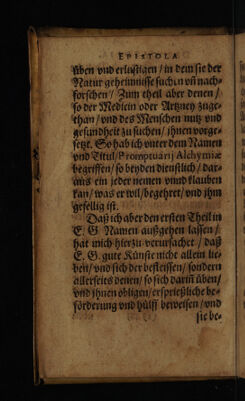 EPISTOLA
üben vnd erlustigen / in dem sie der
Natur geheimnusse suchen vñ nach-
forschen / Zum theil aber denen /
so der Medicin oder Artzney zuge-
than / vnd des Menschen nutz vnd
gesundheit zu suchen / jhnen vorge-
setzt. So hab ich vnter dem Namen
vnd Titul / Promptuarij Alchymiæ
begriffen / so beyden dienstlich / dar-
aus ein jeder nemen vnnd klauben
kan / was er wil / begehret / vnd jhm
gefellig ist.
Daß ich aber den ersten Theil in
E. G. Namen außgehen lassen /
hat mich hierzu verursachet / daß
E. G. gute Künste nicht allein lie-
ben / vnd sich der befleissen / sondern
allerseits denen / so sich darin̄ üben /
vnd jhnen obligen / ersprießliche be-
förderung vnd hülff beweisen / vnd
sie be-